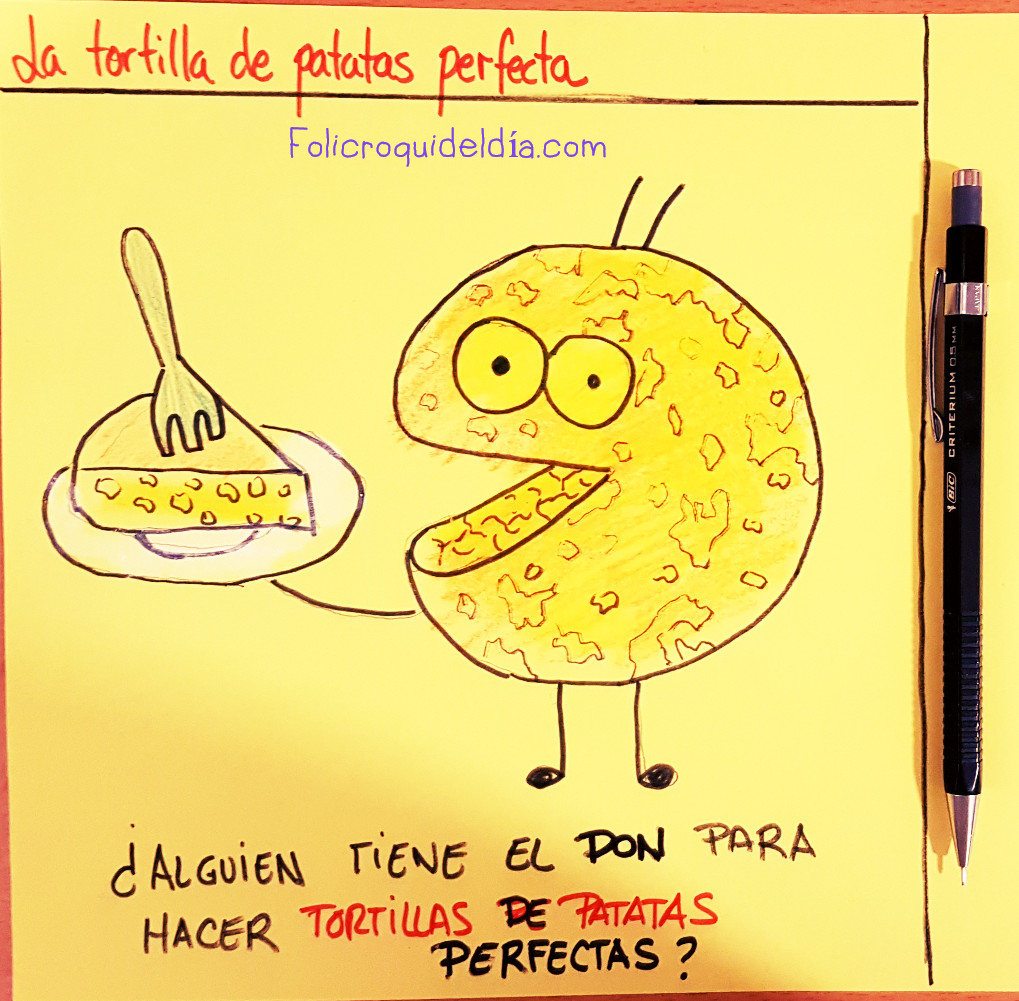 La tortilla de patatas perfecta
Folicroquideldía.com
¿ALGUIEN TIENE EL DON PARA
HACER TORTILLAS DE PATATAS
PERFECTAS?
BIC CRITERIUM 0.5 MM
JAPAN